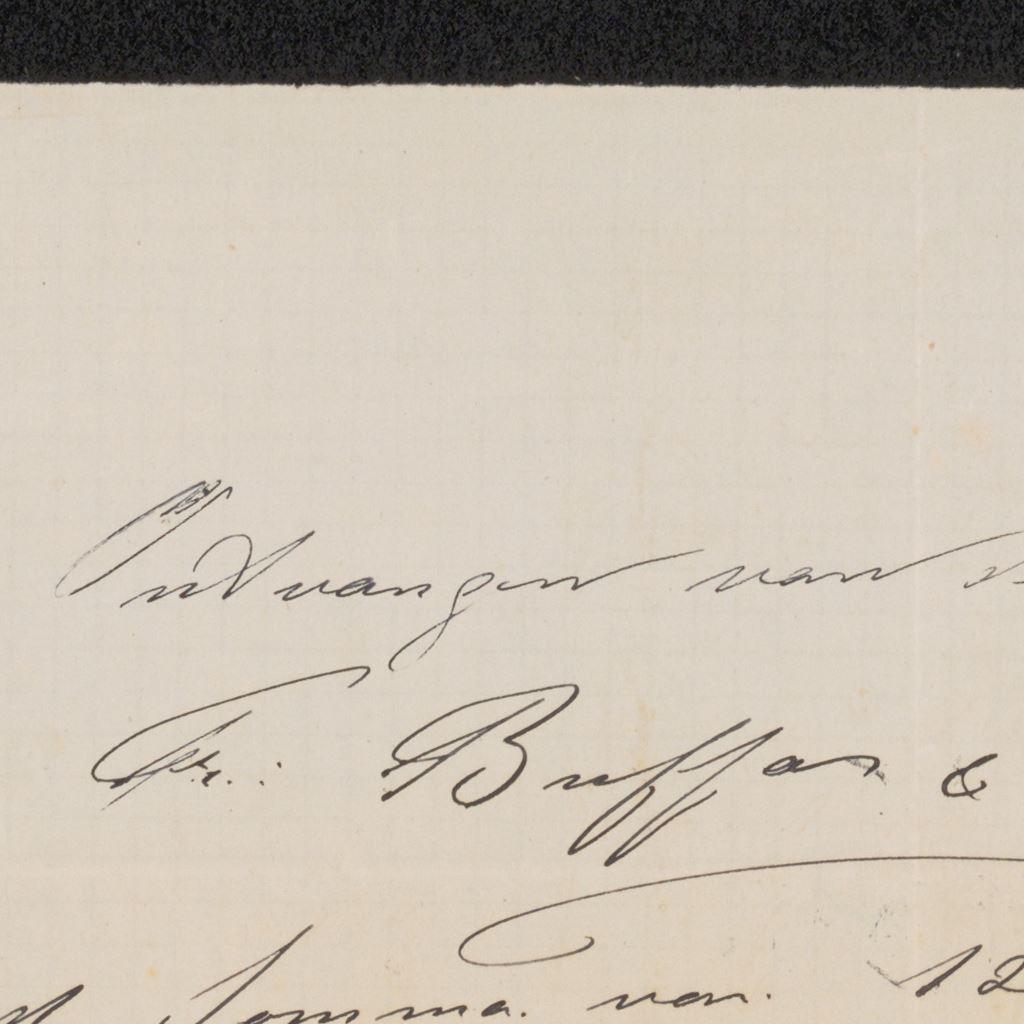 Ontvangen van d
Fr. Buffa &
Somma van 12